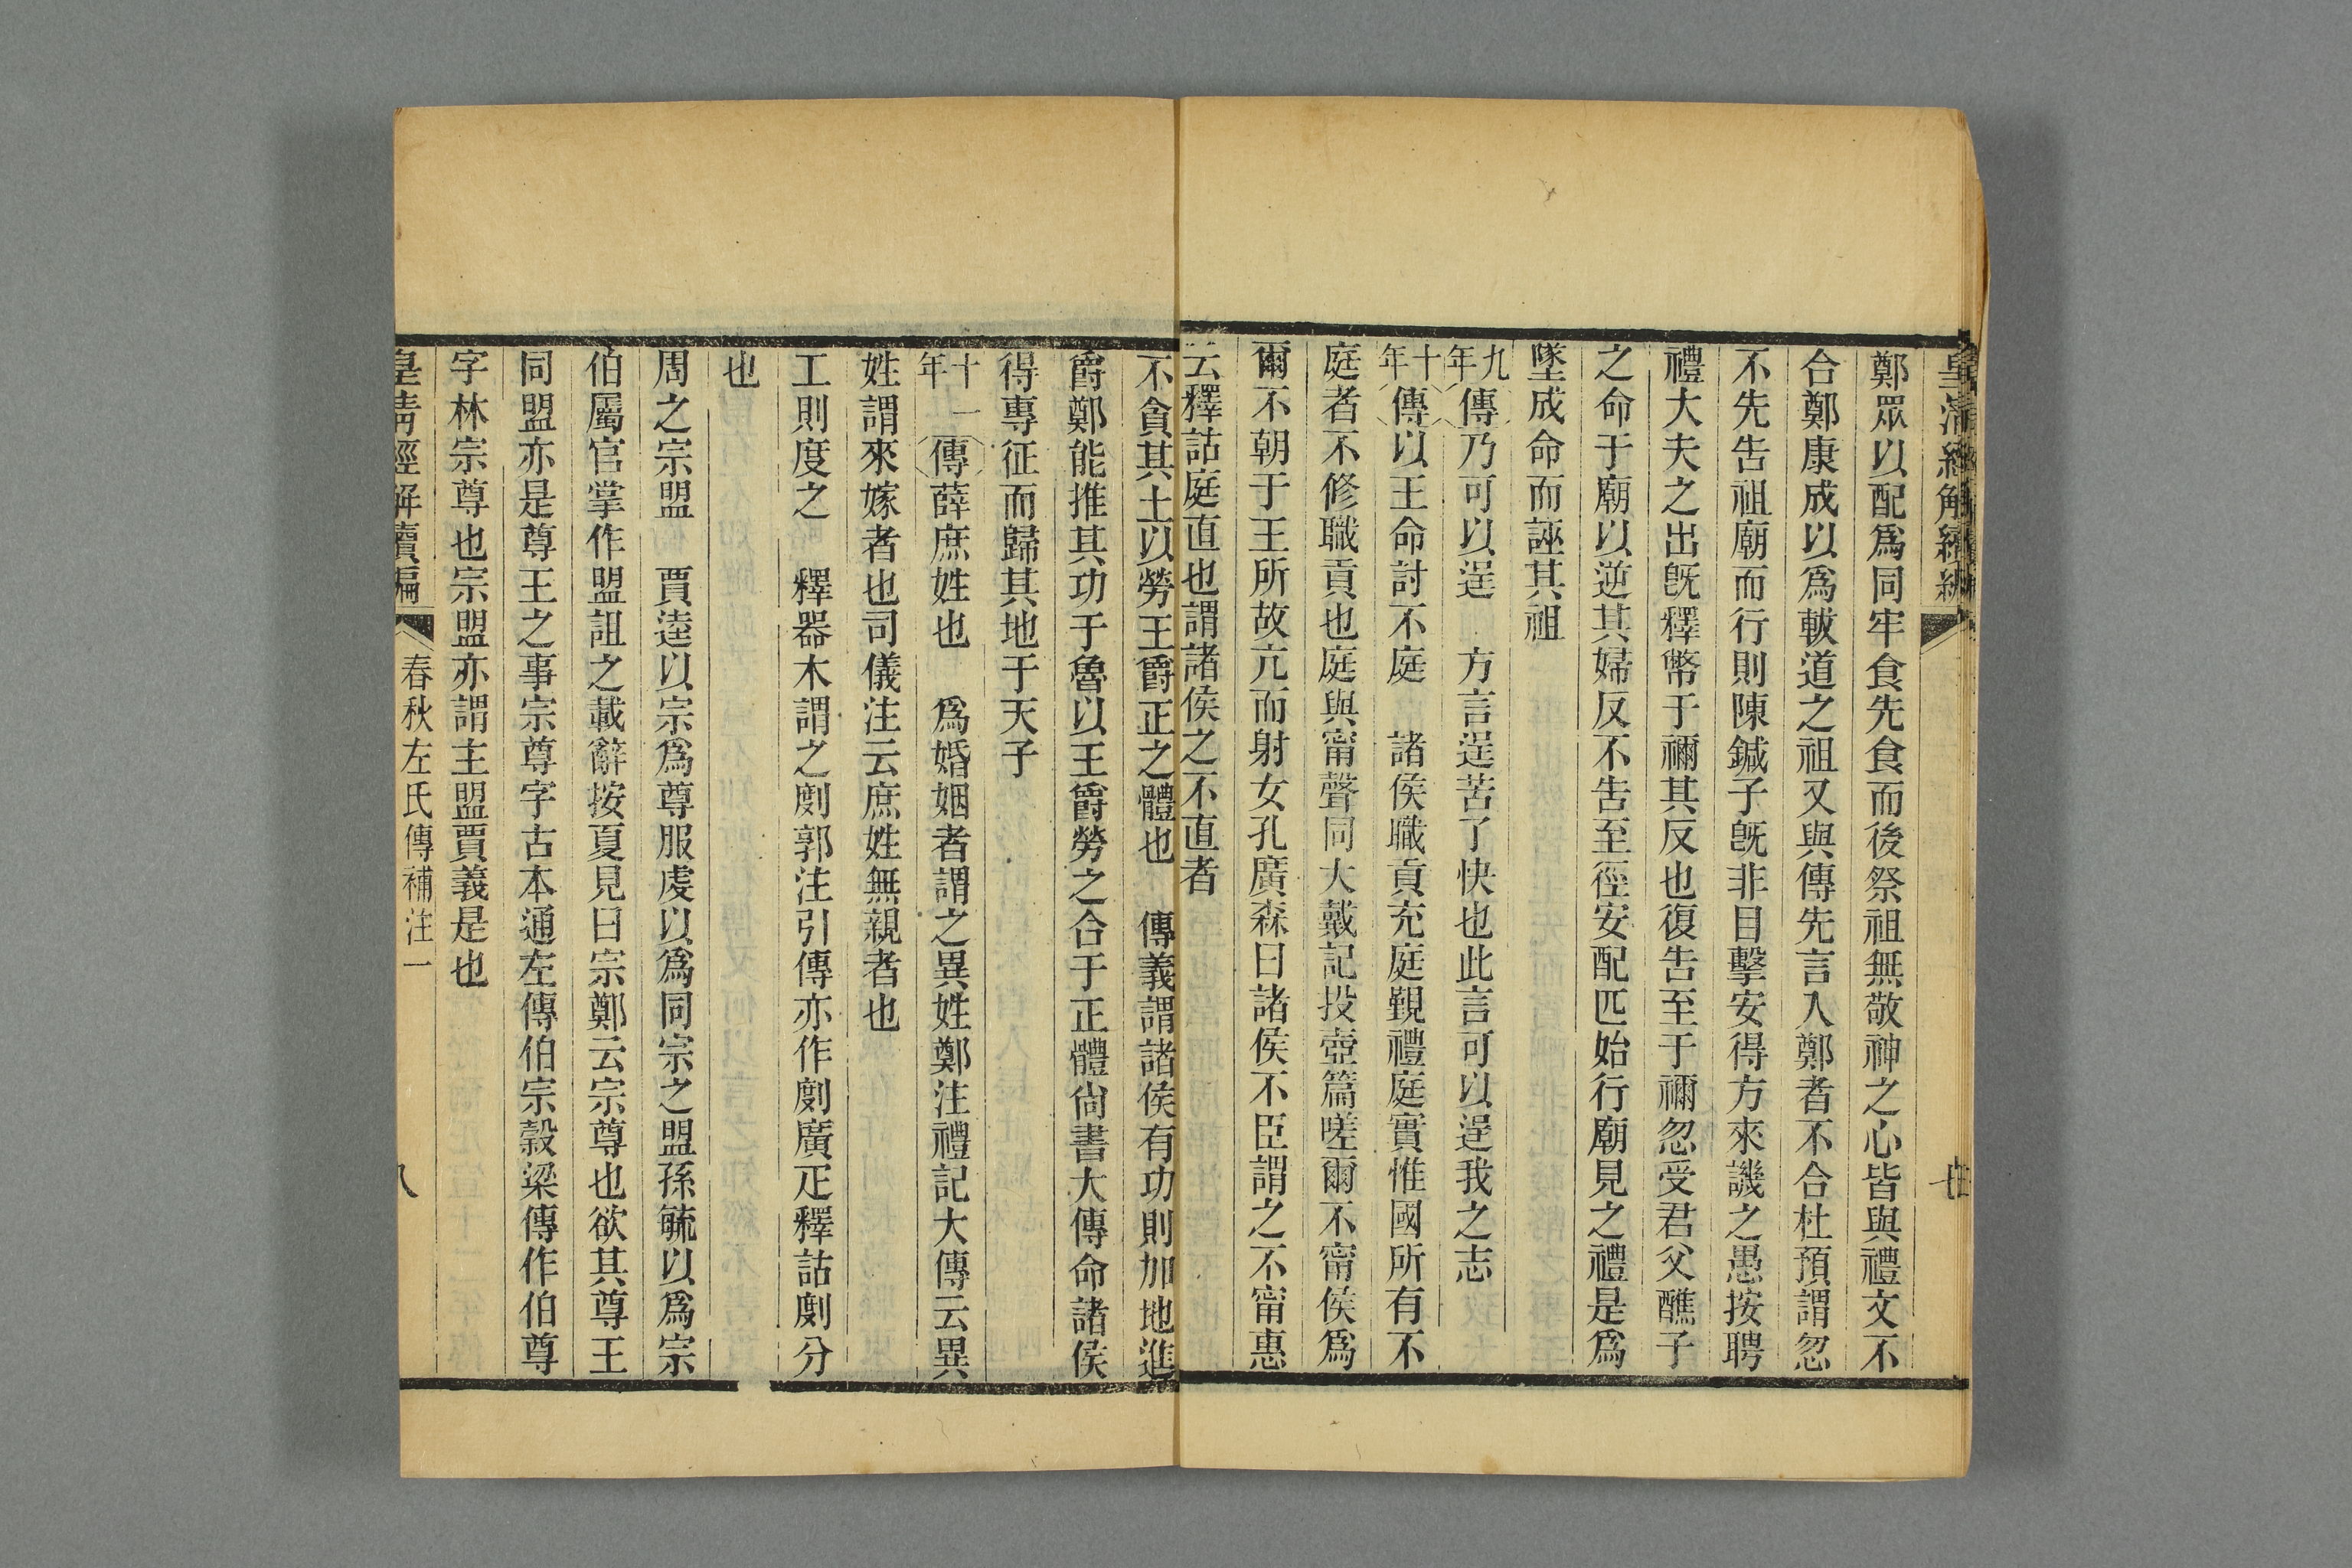 皇清經解續編
七
鄭眾以配爲同牢食先食而後祭祖無敬神之心皆與禮文不
合鄭康成以爲軷道之祖又與傳先言入鄭者不合杜預謂忽
不先告祖廟而行則陳鍼子旣非目擊安得方來譏之愚按聘
禮大夫之出旣釋幣于禰其反也復告至于禰忽受君父醮子
之命于廟以逆其婦反不告至徑安配匹始行廟見之禮是爲
墜成命而誣其祖
九年傳乃可以逞　方言逞苦了快也此言可以逞我之志
十年傳以王命討不庭　諸侯職貢充庭覲禮庭實惟國所有不
庭者不修職貢也庭與甯聲同大戴記投壺篇嗟爾不甯侯爲
爾不朝于王所故亢而射女孔廣森曰諸侯不臣謂之不甯惠
云釋詁庭直也謂諸侯之不直者
不貪其土以勞王爵正之體也　傳義謂諸侯有功則加地進
爵鄭能推其功于魯以王爵勞之合于正體尙書大傳命諸侯
得專征而歸其地于天子
十一年傳薛庶姓也　爲婚姻者謂之異姓鄭注禮記大傳云異
姓謂來嫁者也司儀注云庶姓無親者也
工則度之　釋器木謂之剫郭注引傳亦作剫廣疋釋詁剫分
也
周之宗盟　賈逵以宗爲尊服虔以爲同宗之盟孫毓以爲宗
伯屬官掌作盟詛之載辭按夏見曰宗鄭云宗尊也欲其尊王
同盟亦是尊王之事宗尊字古本通左傳伯宗穀梁傳作伯尊
字林宗尊也宗盟亦謂主盟賈義是也
皇清經解續編
春秋左氏傳補注一
八